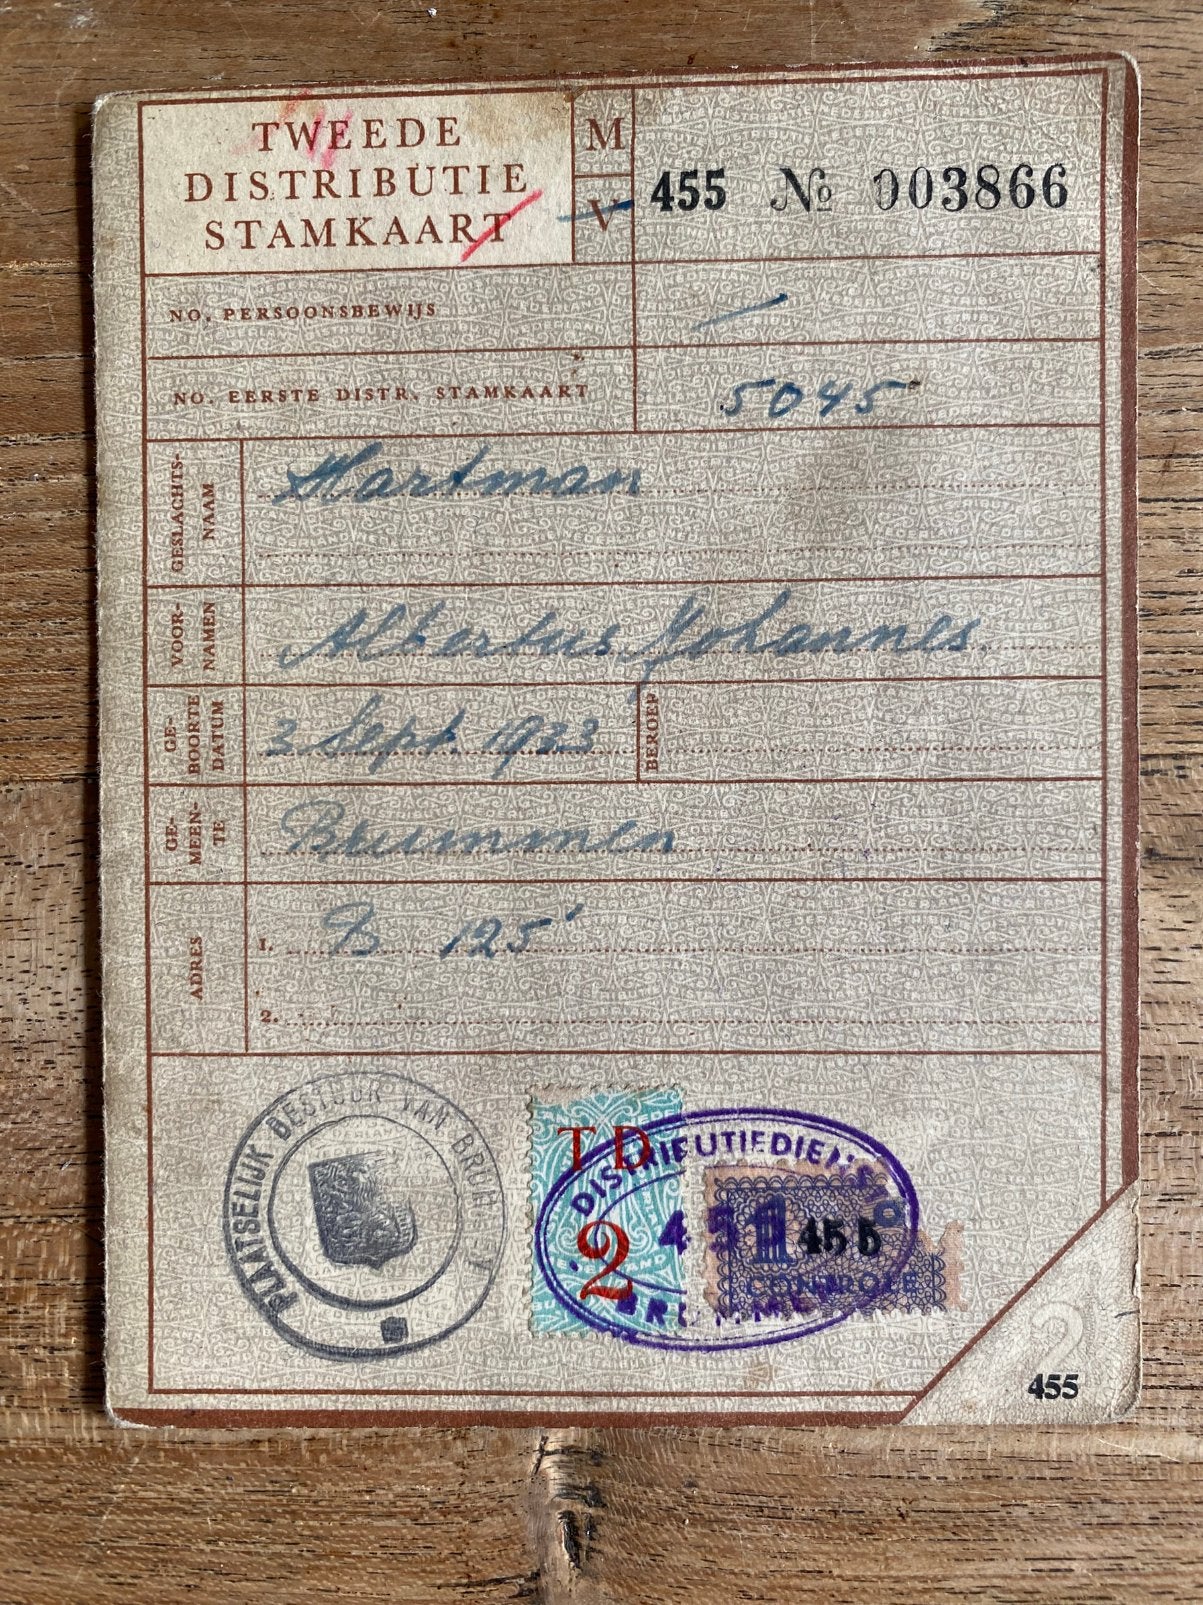 TWEEDE
DISTRIBUTIE
STAMKAART
M
V
455 № 003866
NO. PERSOONSBEWIJS
NO. EERSTE DISTR. STAMKAART 5045
GESLACHTS-
NAAM
Hartman
VOOR-
NAMEN
Albertus Johannes
GE-
BOORTE
DATUM
3 Sept. 1933
BEROEP
GE-
MEEN-
TE
Brummen
ADRES
1. B 125
2.
PLAATSELIJK BESTUUR VAN
TD
2
DISTRIBUTIEDIENST
1
455
CONTROLE
BRUMMEN
2
455